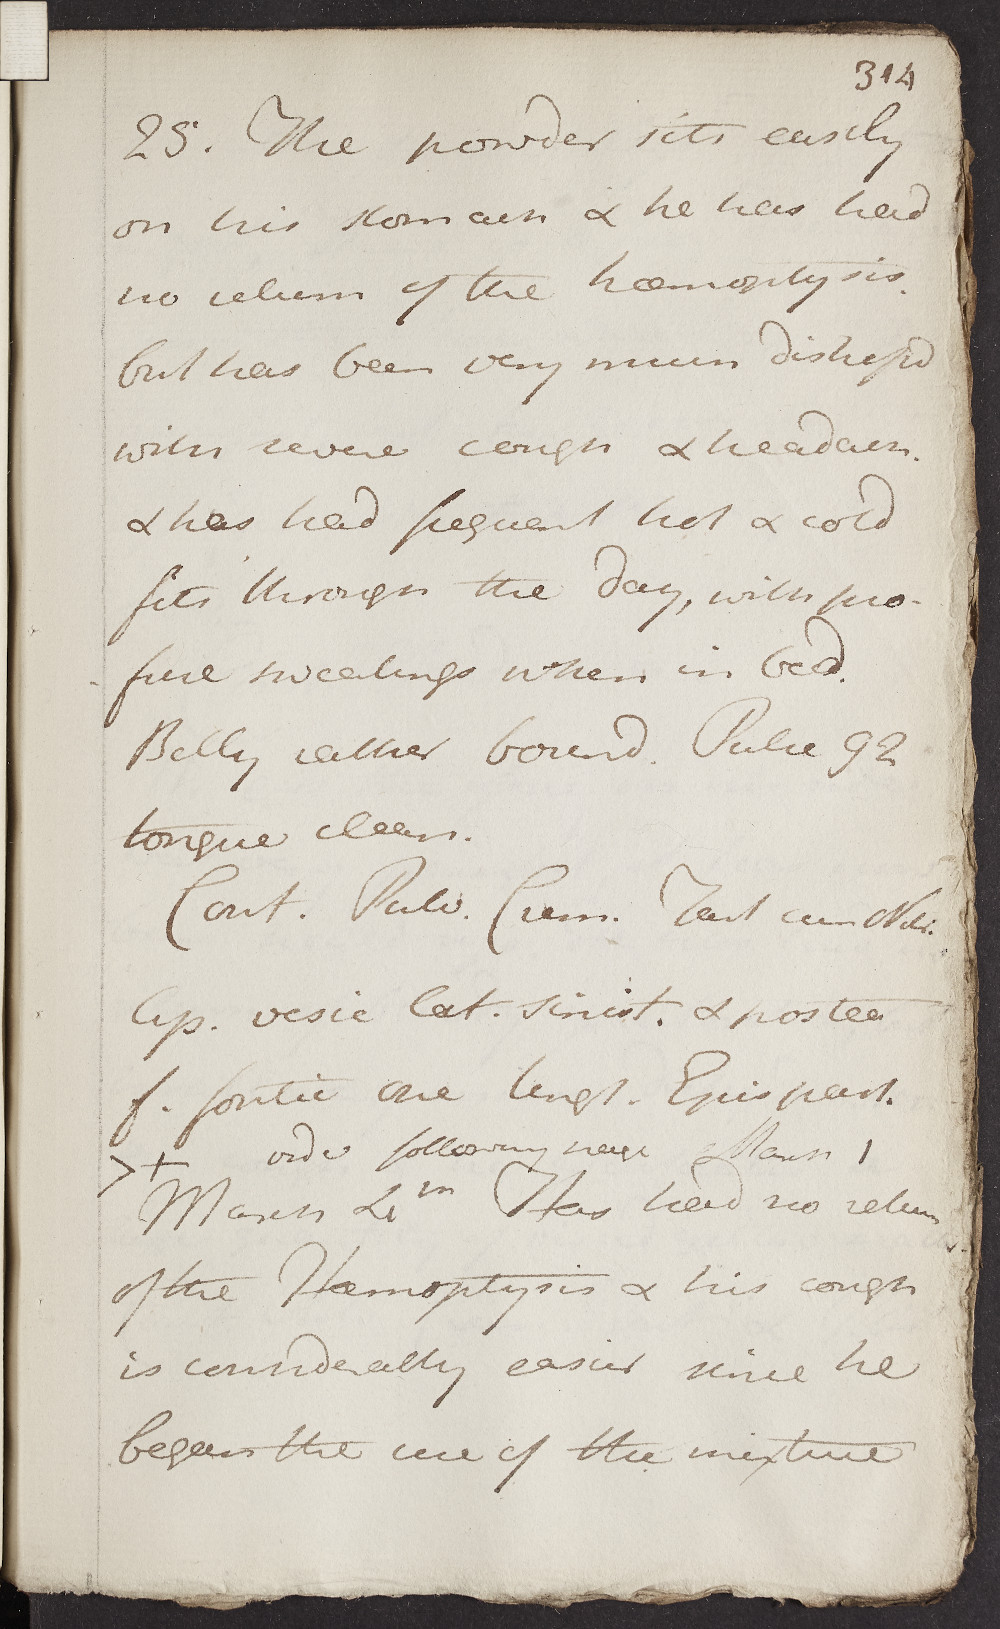 314
25. The powder sits easily
on his stomach & he has had
no return of the hæmoptysis.
but has been very much distressd
with severe cough & headach.
& has had frequent hot & cold
fits through the day, with pro-
fuse sweatings when in bed.
Belly rather bound. Pulse 92
tongue clean.
Cont. Pulv. Crem. Tart cum Nitr.
Ap. vesic lat. sinist. & postea
f. fontic ope Ungt. Epispast.
>+ vide following page March 1
March 4th Has had no return
of the Hæmoptysis & his cough
is considerably easier since he
began the use of the mixture